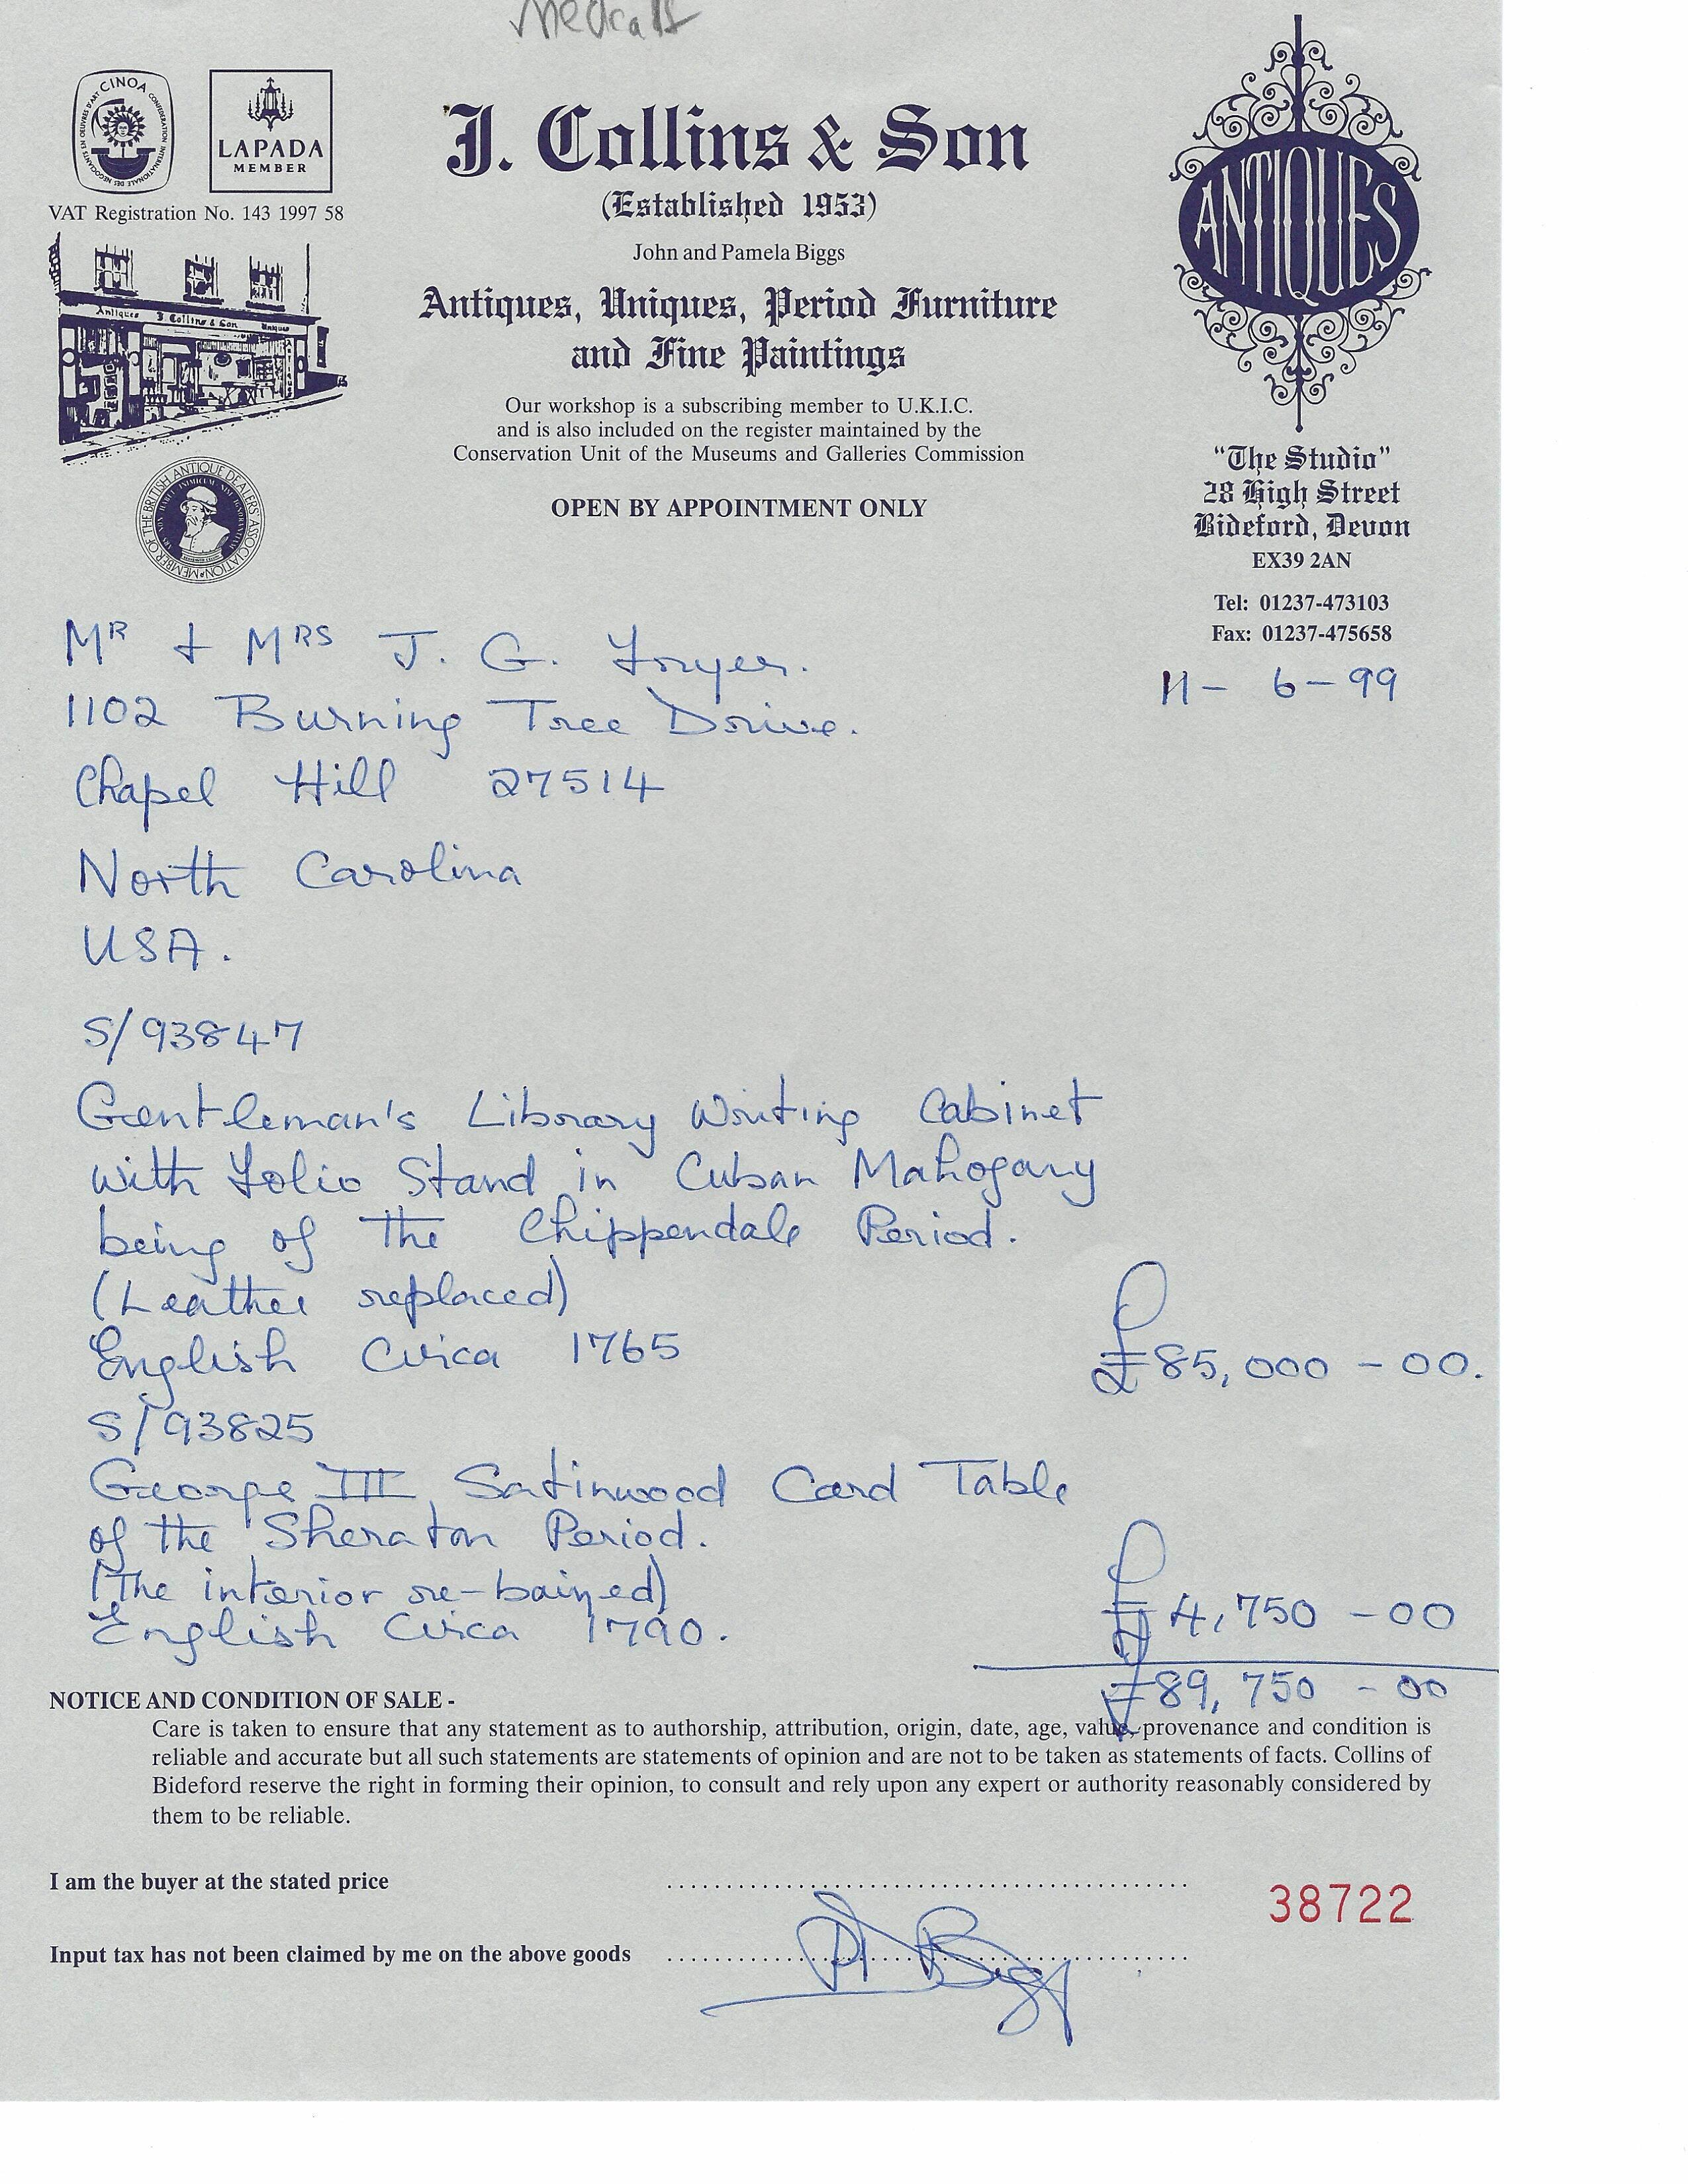 CINOA
CONFEDERATION INTERNATIONALE DES NEGOCIANTS EN OEUVRES D'ART
LAPADA
MEMBER
VAT Registration No. 143 1997 58
J. Collins & Son
(Established 1953)
John and Pamela Biggs
Antiques, Uniques, Period Furniture
and Fine Paintings
Our workshop is a subscribing member to U.K.I.C.
and is also included on the register maintained by the
Conservation Unit of the Museums and Galleries Commission
OPEN BY APPOINTMENT ONLY
Antiques J. Collins & Son Uniques
MEMBER OF THE BRITISH ANTIQUE DEALERS' ASSOCIATION
ANTIQUES
"The Studio"
28 High Street
Bideford, Devon
EX39 2AN
Tel: 01237-473103
Fax: 01237-475658
11- 6-99
MR + MRS J. G. Fryer.
1102 Burning Tree Drive.
Chapel Hill 27514
North Carolina
USA.
S/93847
Gentleman's Library Writing Cabinet
with Folio Stand in Cuban Mahogany
being of the Chippendale Period.
(Leather replaced)
English Circa 1765 £85,000-00.
S/93825
George III Satinwood Card Table
of the Sheraton Period.
(The interior re-bained)
English Circa 1790. £4,750-00
£89,750-00
NOTICE AND CONDITION OF SALE -
Care is taken to ensure that any statement as to authorship, attribution, origin, date, age, value, provenance and condition is
reliable and accurate but all such statements are statements of opinion and are not to be taken as statements of facts. Collins of
Bideford reserve the right in forming their opinion, to consult and rely upon any expert or authority reasonably considered by
them to be reliable.
I am the buyer at the stated price
38722
Input tax has not been claimed by me on the above goods
P Biggs